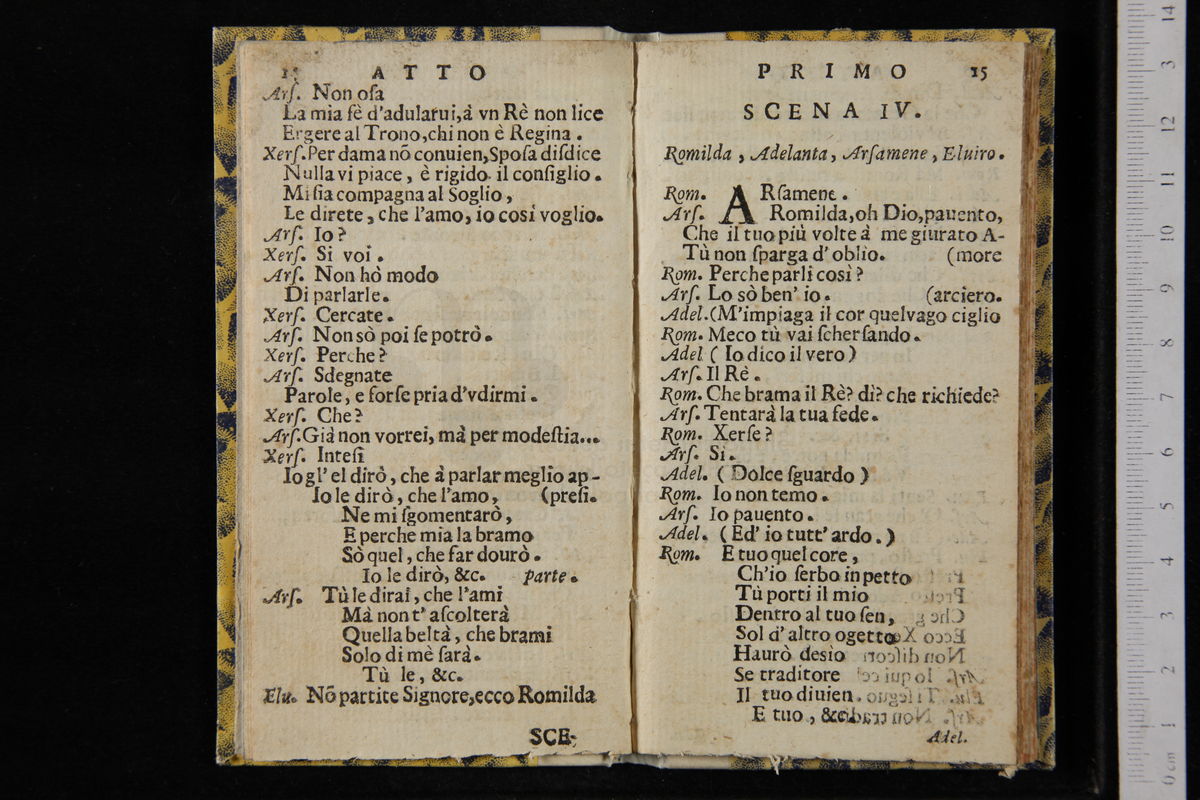 ATTO
Arſ. Non oſa
La mia fè d'adularui, à vn Rè non lice
Ergere al Trono, chi non è Regina.
Xerſ. Per dama nõ conuien, Spoſa diſdice
Nulla vi piace, è rigido il conſiglio.
Mi ſia compagna al Soglio,
Le direte, che l'amo, io così voglio.
Arſ. Io?
Xerſ. Si voi.
Arſ. Non hò modo
Di parlarle.
Xerſ. Cercate.
Arſ. Non sò poi ſe potrò.
Xerſ. Perche?
Arſ. Sdegnate
Parole, e forſe pria d'vdirmi.
Xerſ. Che?
Arſ. Già non vorrei, mà per modeſtia...
Xerſ. Inteſi
Io gl'el dirò, che à parlar meglio ap-
Io le dirò, che l'amo, (preſi.
Ne mi ſgomentarò,
E perche mia la bramo
Sò quel, che far dourò.
Io le dirò, &c. parte.
Arſ. Tù le dirai, che l'ami
Mà non t'aſcolterà
Quella beltà, che brami
Solo di mè ſarà.
Tù le, &c.
Elu. Nõ partite Signore, ecco Romilda
SCE-
PRIMO 15
SCENA IV.
Romilda, Adelanta, Arſamene, Eluiro.
Rom. ARſamene.
Arſ. Romilda, oh Dio, pauento,
Che il tuo più volte à me giurato A-
Tù non ſparga d'oblio. (more
Rom. Perche parli così?
Arſ. Lo sò ben' io. (arciero.
Adel. (M'impiaga il cor quel vago ciglio
Rom. Meco tù vai ſcherſando.
Adel (Io dico il vero)
Arſ. Il Rè.
Rom. Che brama il Rè? dì? che richiede?
Arſ. Tentarà la tua fede.
Rom. Xerſe?
Arſ. Sì.
Adel. (Dolce ſguardo)
Rom. Io non temo.
Arſ. Io pauento.
Adel. (Ed' io tutt' ardo.)
Rom. E tuo quel core,
Ch'io ſerbo in petto
Tù porti il mio
Dentro al tuo ſen,
Sol d'altro ogetto
Haurò desìo
Se traditore
Il tuo diuien.
E tuo, &c.
Adel.